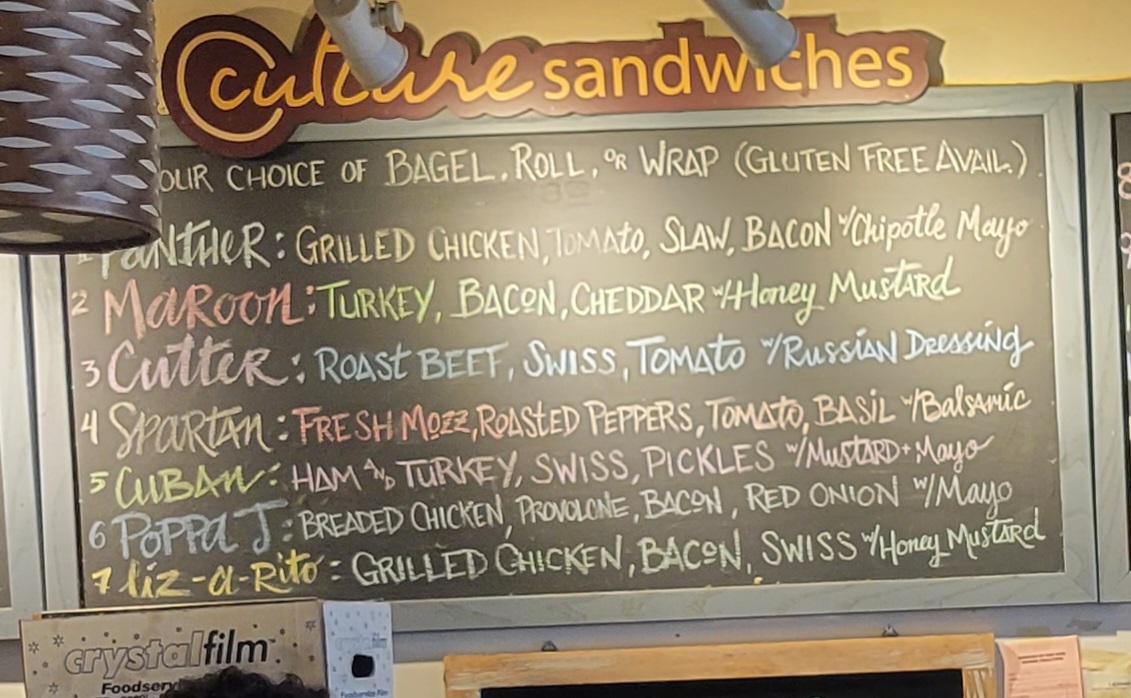 Culture sandwiches
OUR CHOICE OF BAGEL, ROLL, OR WRAP (GLUTEN FREE AVAIL.)
PANTHER: GRILLED CHICKEN, TOMATO, SLAW, BACON w/Chipotle Mayo
2 MAROON: TURKEY, BACON, CHEDDAR w/Honey MUSTARD
3 CUTTER: ROAST BEEF, SWISS, TOMATO w/RUSSIAN DRESSING
4 SPARTAN: FRESH MOZZ, ROASTED PEPPERS, TOMATO, BASIL w/Balsamic
5 CUBAN: HAM AND TURKEY, SWISS, PICKLES w/MUSTARD+Mayo
6 POPPA J: BREADED CHICKEN, PROVOLONE, BACON, RED ONION w/Mayo
7 liz-a-Rito: GRILLED CHICKEN, BACON, SWISS w/Honey MUSTARD
crystalfilm™
Foodserv